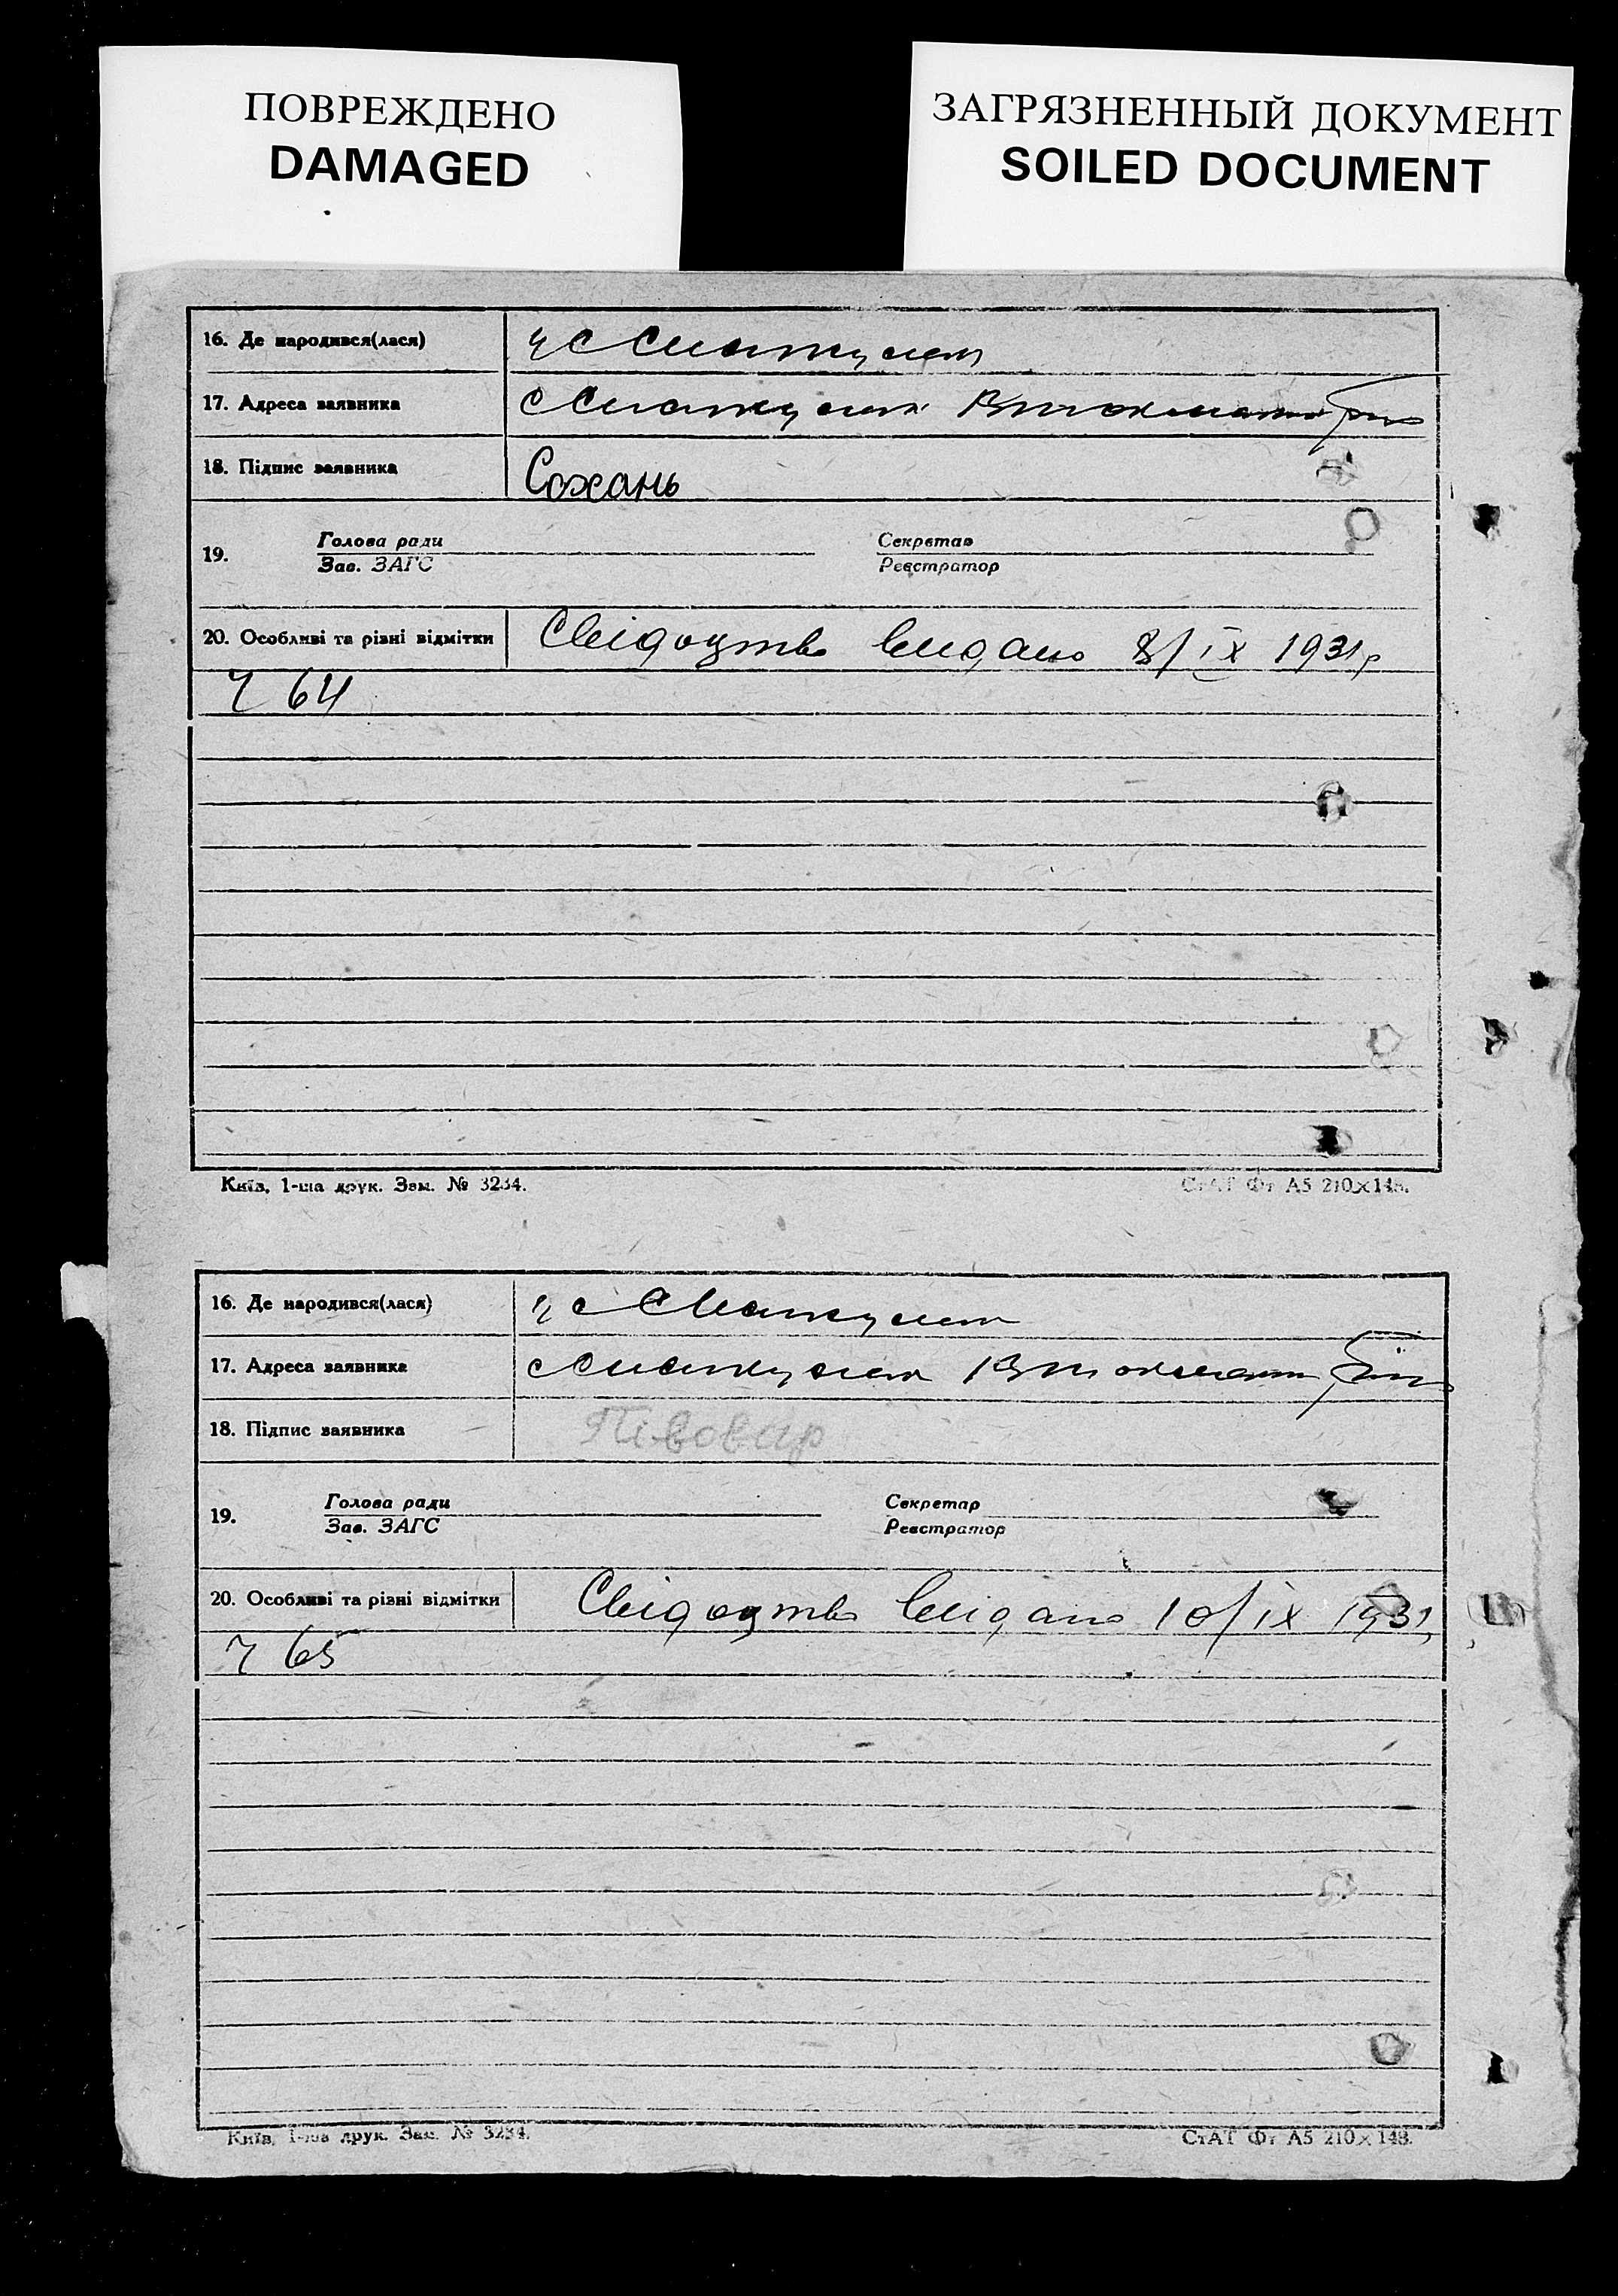 ПОВРЕЖДЕНО
DAMAGED
ЗАГРЯЗНЕННЫЙ ДОКУМЕНТ
SOILED DOCUMENT
16. Де народився(лася)
17. Адреса заявника
18. Підпис заявника Сохань
19. Голова ради Секретар
Зав. ЗАГС Реєстратор
20. Особливі та різні відмітки Свідоцтво видано 8/IX 1931р
64
Київ, 1-ша друк. Зам. № 3234. СтАТ Фт А5 210×148.
16. Де народився(лася)
17. Адреса заявника
18. Підпис заявника Півовар
19. Голова ради Секретар
Зав. ЗАГС Реєстратор
20. Особливі та різні відмітки Свідоцтво видано 10/IX 1931
65
Київ, 1-ша друк. Зам. № 3234. СтАТ Фт А5 210×148.